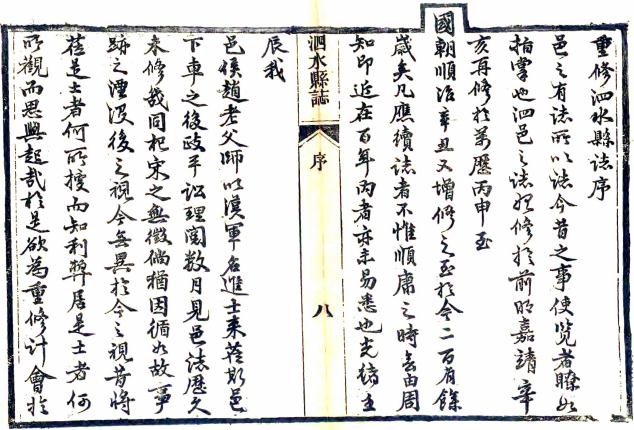 重修泗水縣志序
邑之有誌所以誌今昔之事使览者瞭如
指掌也泗邑之誌初修於前明嘉靖辛
亥再修於萬歷丙申至
國朝順治辛丑又增修之至於今二百有餘
歲矣凡應續誌者不惟順康之時無由周
知即近在百年内者亦未易悉也光緒壬
泗水縣誌
序
八
辰我
邑侯趙老父師以漢軍名進士来蒞斯邑
下車之後政平訟理閲数月見邑誌歷久
未修幾同杞宋之無徵倘猶因循如故事
跡之湮没後之視今無異於今之視昔将
蒞是土者何所據而知利弊居是土者何
所觀而思興起哉於是欲為重修計會於